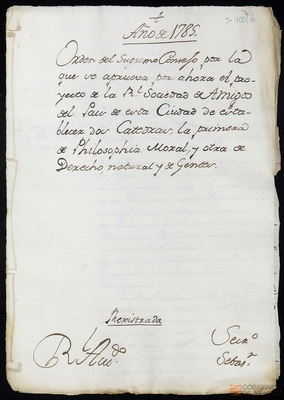 Año de 1785.
Orden del Supremo Consejo por la
que se aprueva, por ahora el pro-
yecto de la Rl. Sociedad de Amigos
del Pais de esta Ciudad de esta-
blecer dos Catedras, la primera
de Philosophia Moral, y otra de
Derecho natural y de Gentes.
Rexistrada
Rl Acdo.
Secro.
Sebasn.
GOBIERNO